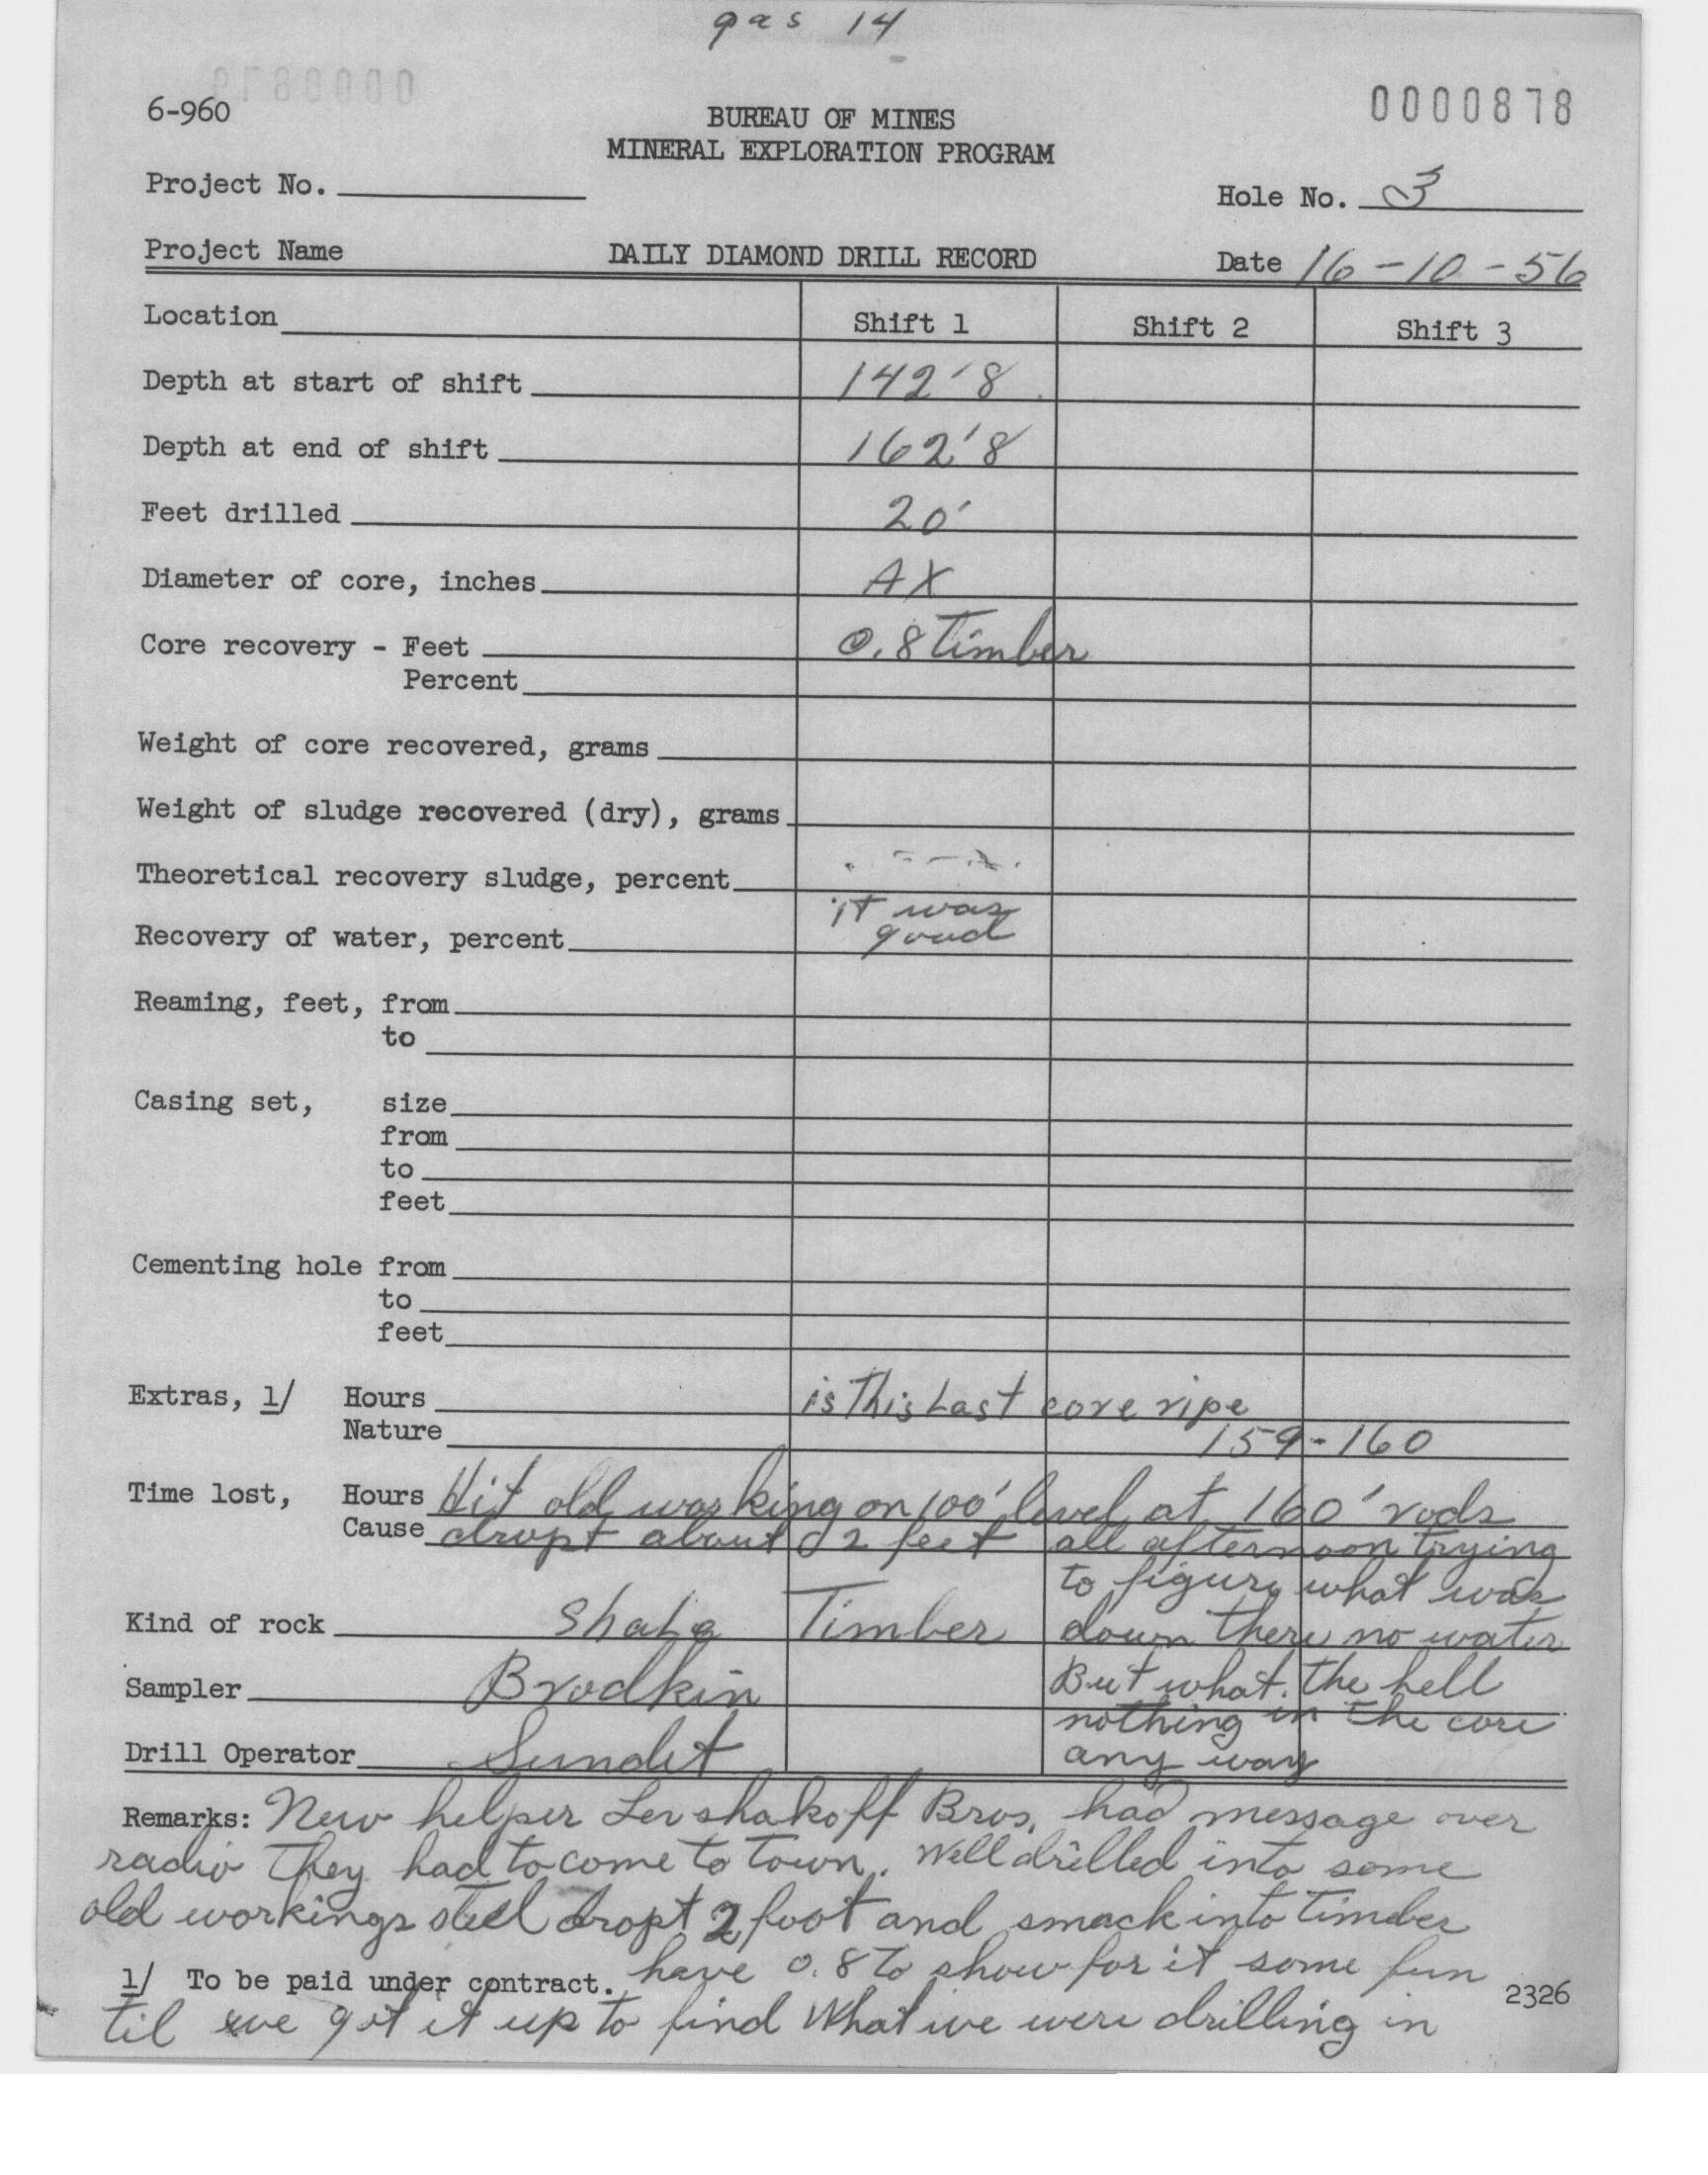 gas 14
6-960
0000878
BUREAU OF MINES
MINERAL EXPLORATION PROGRAM
Project No.
Hole No. 3
Project Name DAILY DIAMOND DRILL RECORD Date 16-10-56
Location Shift 1 Shift 2 Shift 3
Depth at start of shift 142'8
Depth at end of shift 162'8
Feet drilled 20'
Diameter of core, inches AX
Core recovery - Feet 0.8 Timber
Percent
Weight of core recovered, grams
Weight of sludge recovered (dry), grams
Theoretical recovery sludge, percent
it was
Recovery of water, percent good
Reaming, feet, from
to
Casing set, size
from
to
feet
Cementing hole from
to
feet
Extras, 1/ Hours is This Last core ripe
Nature 159-160
Time lost, Hours Hit old working on 100' level at 160' rods
Cause dropt about 2 feet all afternoon trying
to figure what was
Kind of rock Shale Timber down there no water
Sampler Brodkin But what the hell
nothing in the core
Drill Operator Sundt any way
Remarks: New helper Levshakoff Bros. had message over
radio They had to come to Town. Well drilled into some
old workings steel dropt 2 foot and smack into timber
1/ To be paid under contract. have 0.8 To show for it some fun
2326
til we got it up to find What we were drilling in